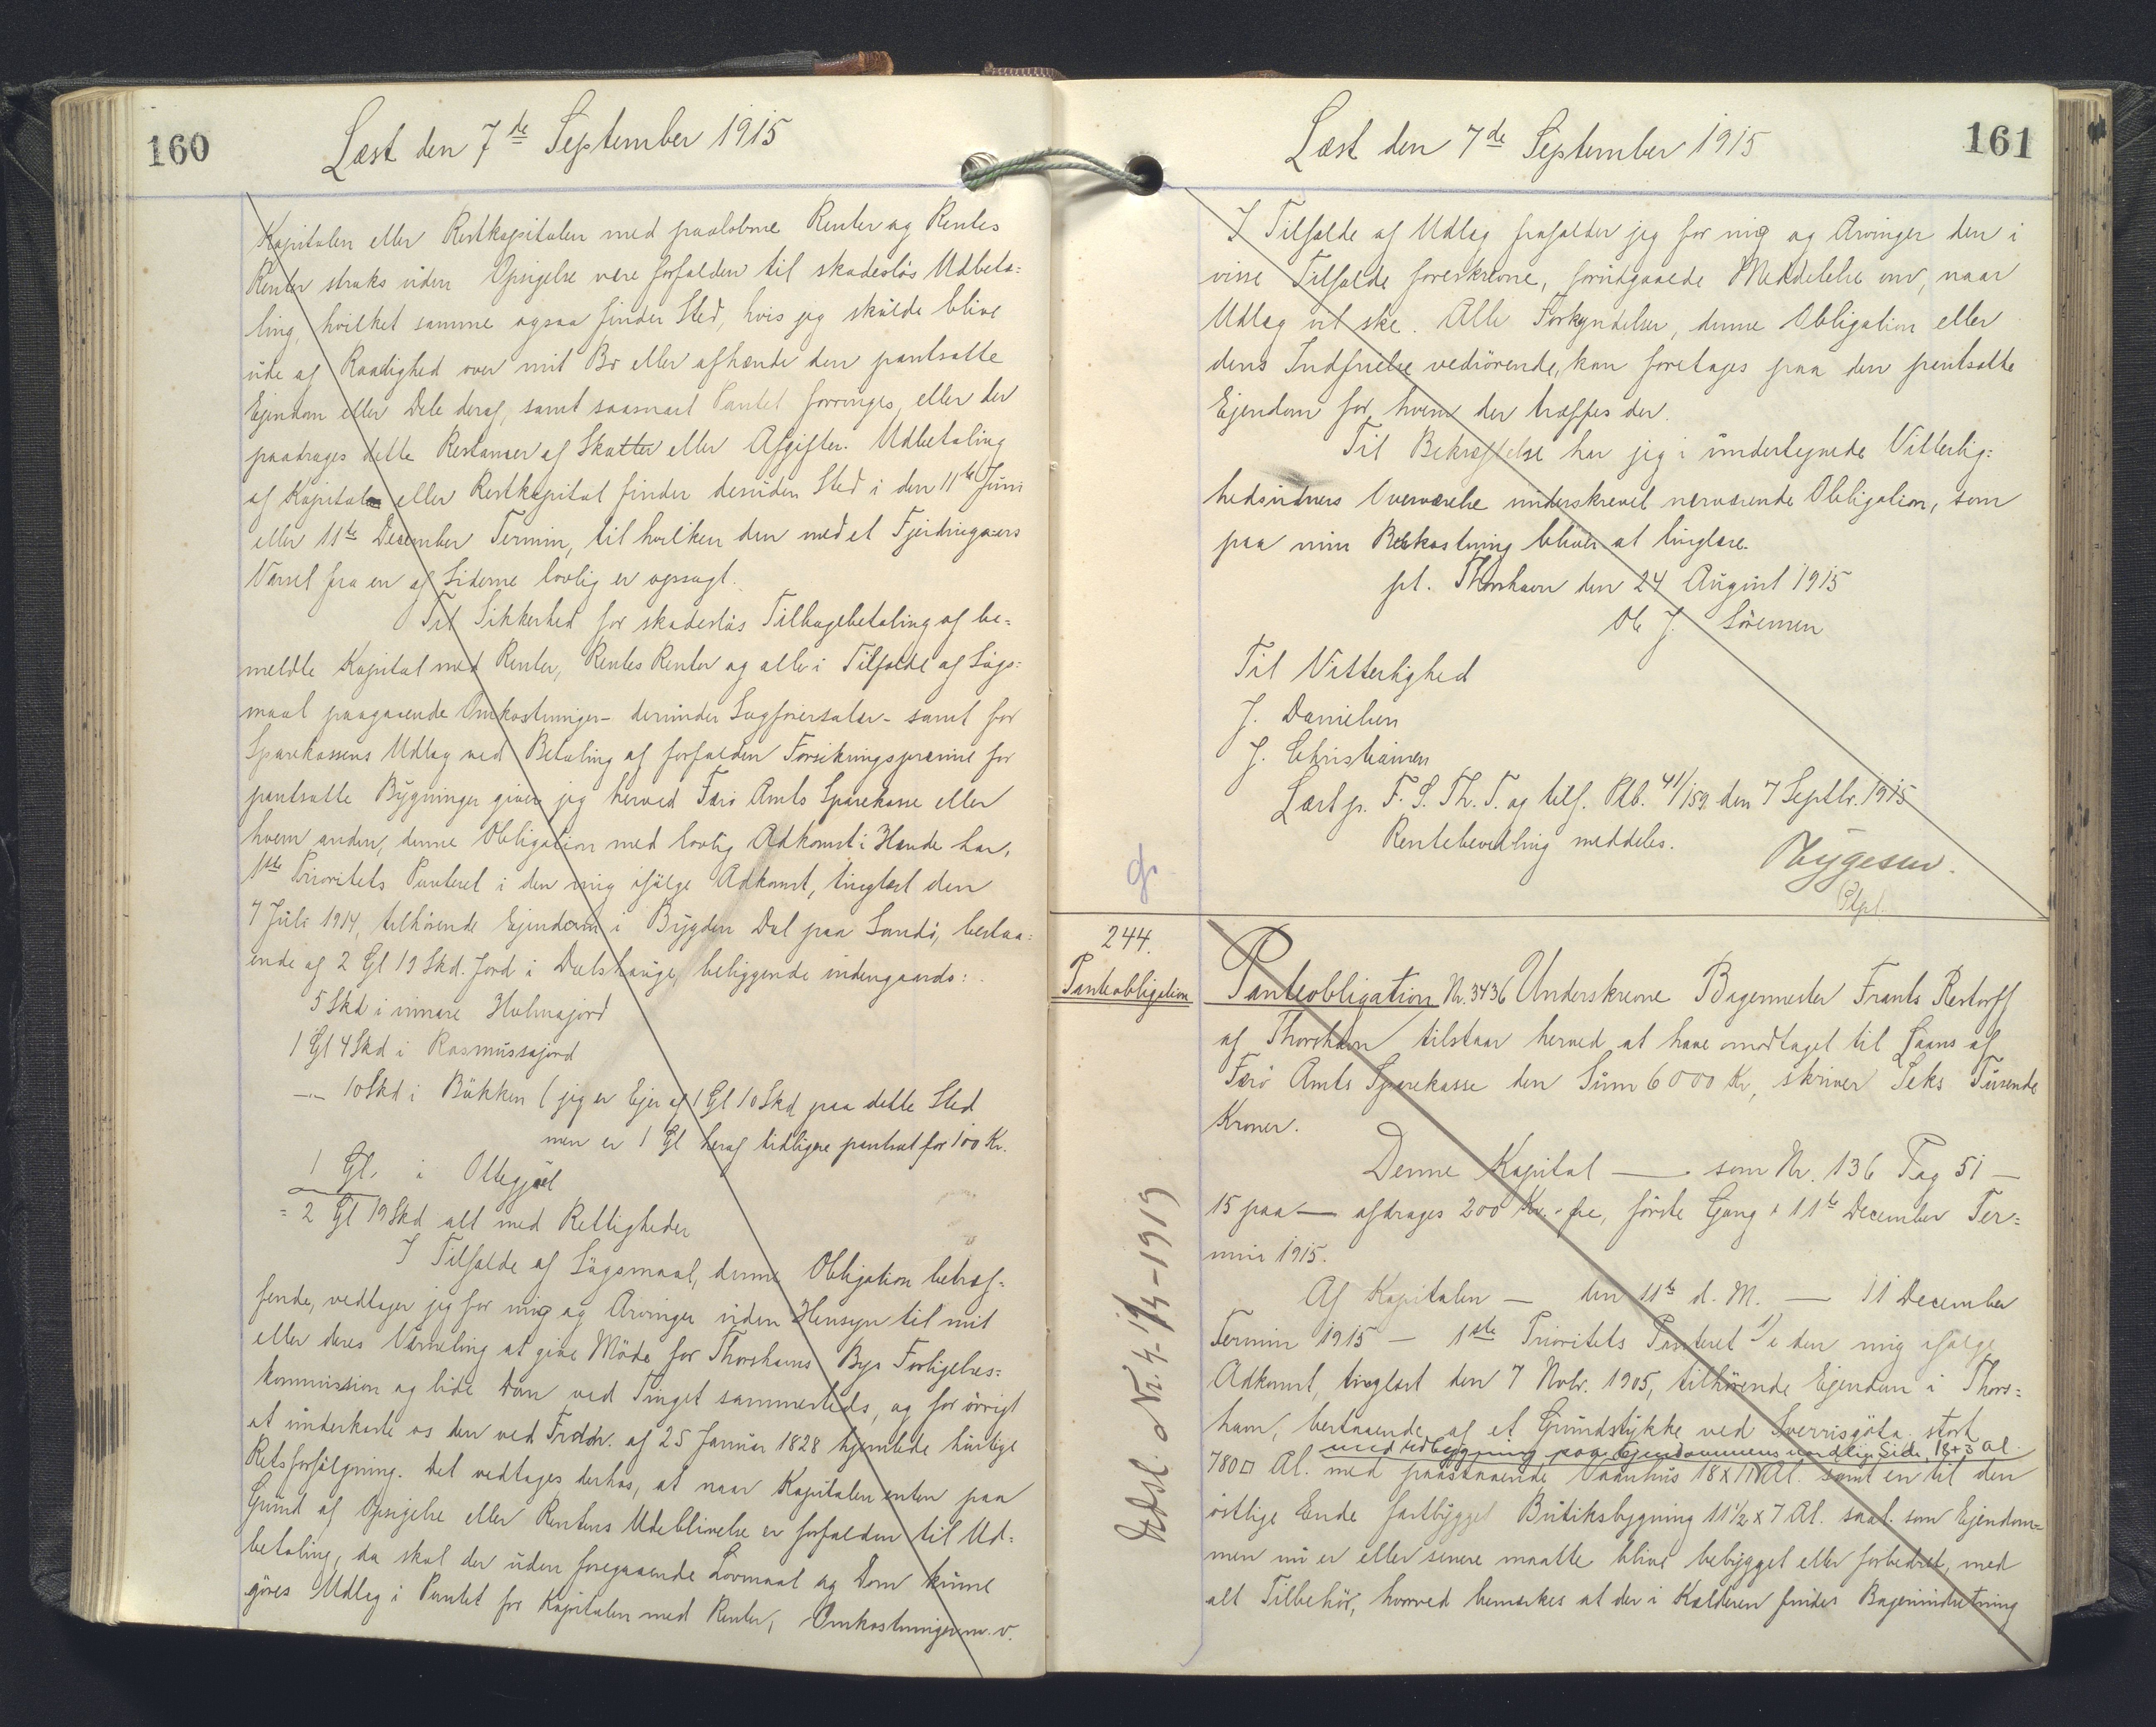 160
Læst den 7de September 1915
Kapitalen eller Restkapitalen med paaløbne Renter og Rentes
Renter straks uden Opsigelse være forfalden til skadesløs Udbeta=
ling, hvilket samme ogsaa finder Sted, hvis jeg skulde blive
ude af Raadighed over mit Bo eller afhænde den pantsatte
Ejendom eller Dele deraf, samt saasnart Pantet forringes, eller der
paadrages dette Restancer af Skatter eller Afgifter. Udbetaling
af Kapital eller Restkapital finder desuden Sted i den 11te Juni
eller 11te December Termin, til hvilken den med et Fjerdingaars
Varsel fra en af Siderne lovlig er opsagt.
Til Sikkerhed for skadesløs Tilbagebetaling af be=
meldte Kapital med Renter, Rentes Renter og alle i Tilfælde af Søgs=
maal paagaaende Omkostninger – derunder Sagførersalær – samt for
Sparekassens Udlæg ved Betaling af forfalden Forsikringspræmie for
pantsatte Bygninger giver jeg herved Færø Amts Sparekasse eller
hvem anden, denne Obligation med lovlig Adkomst i Hænde har,
1ste Prioritets Panteret i den mig ifølge Adkomst, tinglæst den
7 Juli 1914, tilhørende Ejendom i Bygden Dal paa Sandø, bestaa=
ende af 2 Gl 19 Skd. Jord i Dalshauge, beliggende indengaards:
5 Skd i innare Holmajord
1 Gl 4 Skd i Rasmussajord
–„– 10 Skd i Bükken (jeg er Ejer af 1 Gl 10 Skd paa dette Sted
men er 1 Gl heraf tidligere pantsat for 100 Kr.
1 Gl. i Ottegjæl
= 2 Gl 19 Skd alt med Rettigheder
I Tilfælde af Søgsmaal, denne Obligation betræf=
fende, vedtager jeg for mig og Arvinger uden Hensyn til mit
eller deres Værneting at give Møde for Thorshavns Bys Forligelses=
kommission og lide Dom ved Tinget sammesteds, og for øvrigt
at underkaste os den ved Frdn. af 25 Januar 1828 hjemlede hurtige
Retsforfølgning. Det vedtages derhos, at naar Kapitalen enten paa
Grund af Opsigelse eller Rentens Udeblivelse er forfalden til Ud=
betaling, da skal der uden foregaaende Lovmaal og Dom kunne
gøres Udlæg i Pantet for Kapitalen med Renter, Omkostninger m. v.
161
Læst den 7de September 1915
I Tilfælde af Udlæg frafalder jeg for mig og Arvinger den i
visse Tilfælde foreskrevne, forudgaaede Meddelelse om, naar
Udlæg vil ske. Alle Forkyndelser, denne Obligation eller
dens Indfrielse vedrørende, kan foretages paa den pantsatte
Ejendom for hvem der træffes der.
Til Bekræftelse har jeg i undertegnede Vitterlig=
hedsvidners Overværelse underskrevet nærværende Obligation, som
paa min Bekostning bliver at tinglæse.
pt. Thorshavn den 24 August 1915
Ole J. Sörensen
Til Vitterlighed
J. Danielsen
J. Christiansen
Læst p. F. S. Th. T. og tilf. Ptb. 41/159 den 7 Septbr. 1915
Rentebevilling meddeles.
Bygesen.
Ptpl.
244.
Panteobligation
Panteobligation Nr. 3436 Underskrevne Bagermester Frants Restorff
af Thorshavn tilstaar herved at have modtaget til Laans af
Færø Amts Sparekasse den Sum 6000 Kr, skriver Seks Tusende
Kroner.
Denne Kapital — som Nr. 136 Pag 51 —
15 paa — afdrages 200 Kr. - Øre, første Gang i 11te December Ter=
min 1915.
Af Kapitalen — den 11te d. M. — 11 December
Termin 1915 — 1ste Prioritets Panteret 1/ i den mig ifølge
Adkomst, tinglæst den 7 Novbr. 1905, tilhørende Ejendom i Thors=
havn, bestaaende af et Grundstykke ved Sverrisgøta, stort
med udbygning paa Ejendommens nordlige Side, 18+3 al.
780□ Al. med paastaaende Vaanhus 18 x 11 Al. samt en til den
østlige Ende fastbygget Butiksbygning 11½ x 7 Al. saal. som Ejendom=
men nu er eller senere maatte blive bebygget eller forbedret, med
alt Tilbehør, hvorved bemærkes at der i Kælderen findes Bageriindretning
Udsl. d. Nr. 4-1/4-1919